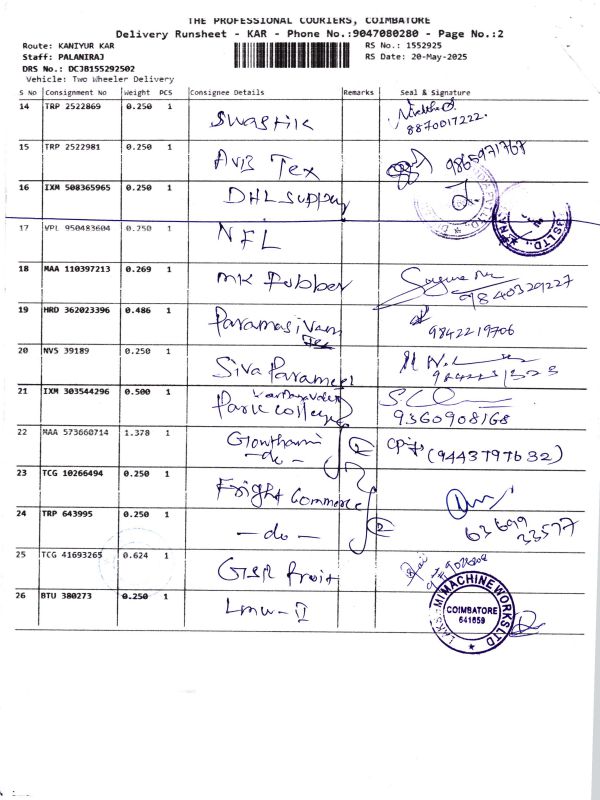 THE PROFESSIONAL COURIERS, COIMBATORE
Delivery Runsheet - KAR - Phone No.:9047080280 - Page No.:2
Route: KANIYUR KAR RS No.: 1552925
Staff: PALANIRAJ RS Date: 20-May-2025
DRS No.: DCJB155292502
Vehicle: Two Wheeler Delivery
S No Consignment No Weight PCS Consignee Details Remarks Seal & Signature
14 TRP 2522869 0.250 1 Swastik
8870017222.
15 TRP 2522981 0.250 1 AVB Tex 9865971767
16 IXM 508365965 0.250 1 DHL Supply
17 VPL 950483604 0.250 1 NFL
18 MAA 110397213 0.269 1 MK Rubber
9840329227
19 HRD 362023396 0.486 1 Paramasivam Tex 9842219706
20 NVS 39189 0.250 1 Siva Parameel
21 IXM 303544296 0.500 1 Park College
9360908168
22 MAA 573660714 1.378 1 Gowthami
-do- 2 (9443797632)
23 TCG 10266494 0.250 1 Fright Commerce
24 TRP 643995 0.250 1 -do- 2 63699 33577
25 TCG 41693265 0.624 1 Fruit
26 BTU 380273 0.250 1 LMW-II
MACHINE WORKS LTD
COIMBATORE
641659